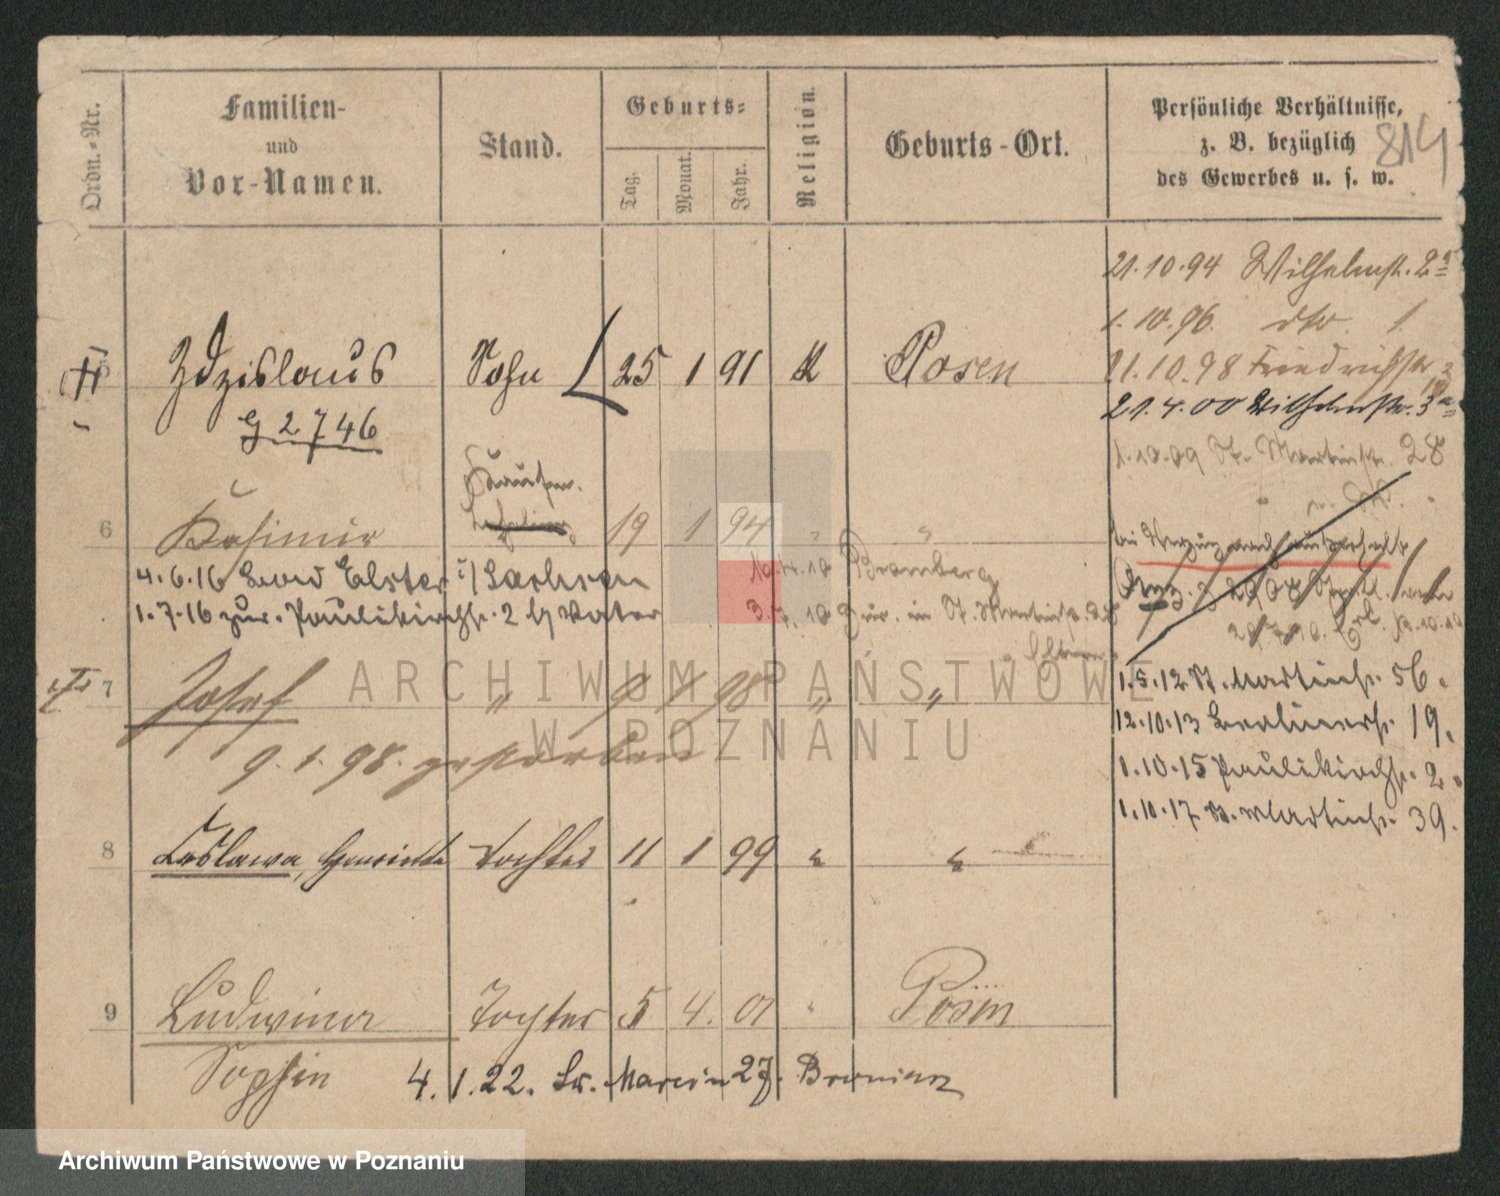 Ordn.-Nr.
Familien-
und
Vor-Namen.
Stand.
Geburts-
Tag.
Monat.
Jahr.
Religion.
Geburts-Ort.
Persönliche Verhältnisse,
z. B. bezüglich
des Gewerbes u. s. w.
814
21.10.94 Wilhelmst. 2a
1.10.96. dto 1
5 Zdzislaus Sohn 25 1 91 K Posen
21.10.98 Friedrichstr
21.4.00 Wilhelmstr. 3a
G 2746
1.10.09 St. Martinstr. 28
6 Kasimir 19 1 94 " "
4.6.16 Elster i/ Sachsen
10.4.10 Bromberg
1.7.16 zur. Paulikirchstr. 2 b/ Vater
3.7.10 zur. in St. Martinstr. 28
Eltern
7 Josef " 9 1 98 " "
1.5.12 St. Martinstr. 56.
9.1.98. gestorben
12.10.13 Berlinerstr. 19.
1.10.15 Paulikirchstr. 2.
1.10.17 St. Martinstr. 39.
8 Ceslawa, Henriette Tochter 11 1 99 " "
9 Ludwina Tochter 5 4. 01 " Posen
Sophin
4.1.22. Św. Marcin 27.
ARCHIWUM PAŃSTWOWE
W POZNANIU
Archiwum Państwowe w Poznaniu